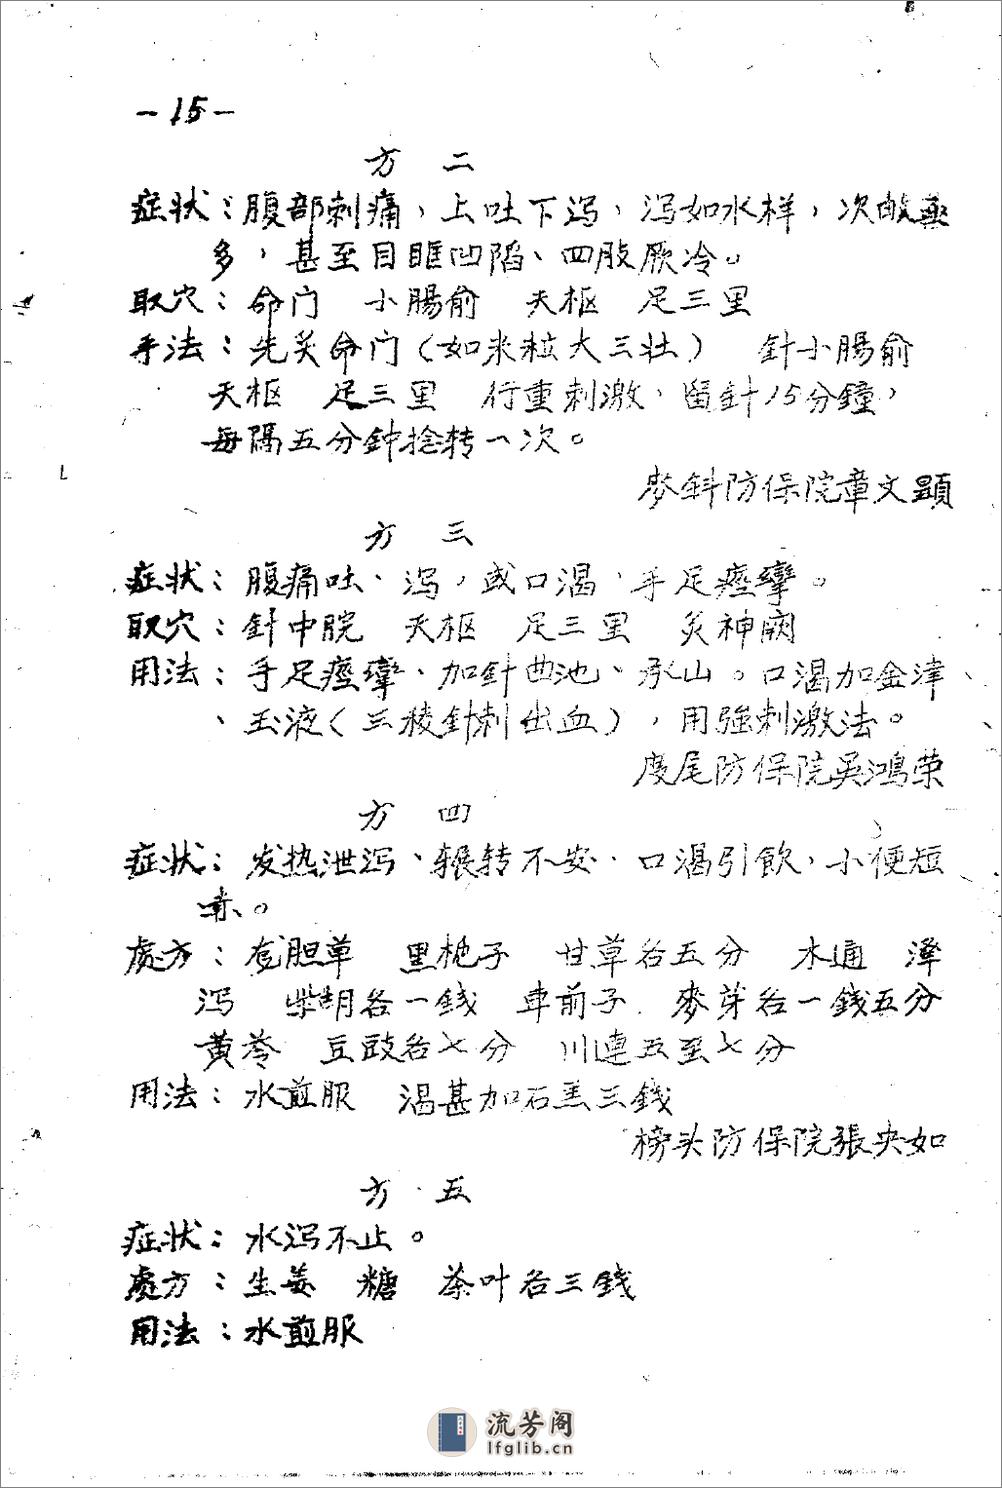 -15-
方 二
症状：腹部刺痛，上吐下泻，泻如水样，次数
多，甚至目眶凹陷、四肢厥冷。
取穴：命门 小腸俞 天枢 足三里
手法：先灸命门（如米粒大三壮） 針小腸俞
天枢 足三里 行重刺激，留針15分鐘，
每隔五分鈡捻转一次。
麥斜防保院章文顕
方 三
症状：腹痛吐、泻，或口渴，手足痙攣。
取穴：針中脘 天枢 足三里 灸神阙
用法：手足痙攣、加針曲池、承山。口渴加金津
、玉液（三稜針刺出血），用強刺激法。
度尾防保院吴鴻荣
方 四
症状：发热泄泻、辗转不安、口渴引飲，小便短
赤。
處方：龙胆草 黑栀子 甘草各五分 木通 澤
泻 柴胡各一錢 車前子 麥芽各一錢五分
黄芩 豆豉各七分 川連五至七分
用法：水煎服 渴甚加石羔三錢
榜头防保院張央如
方 五
症状：水泻不止。
處方：生姜 糖 茶叶各三錢
用法：水煎服
流芳阁
lfglib.cn